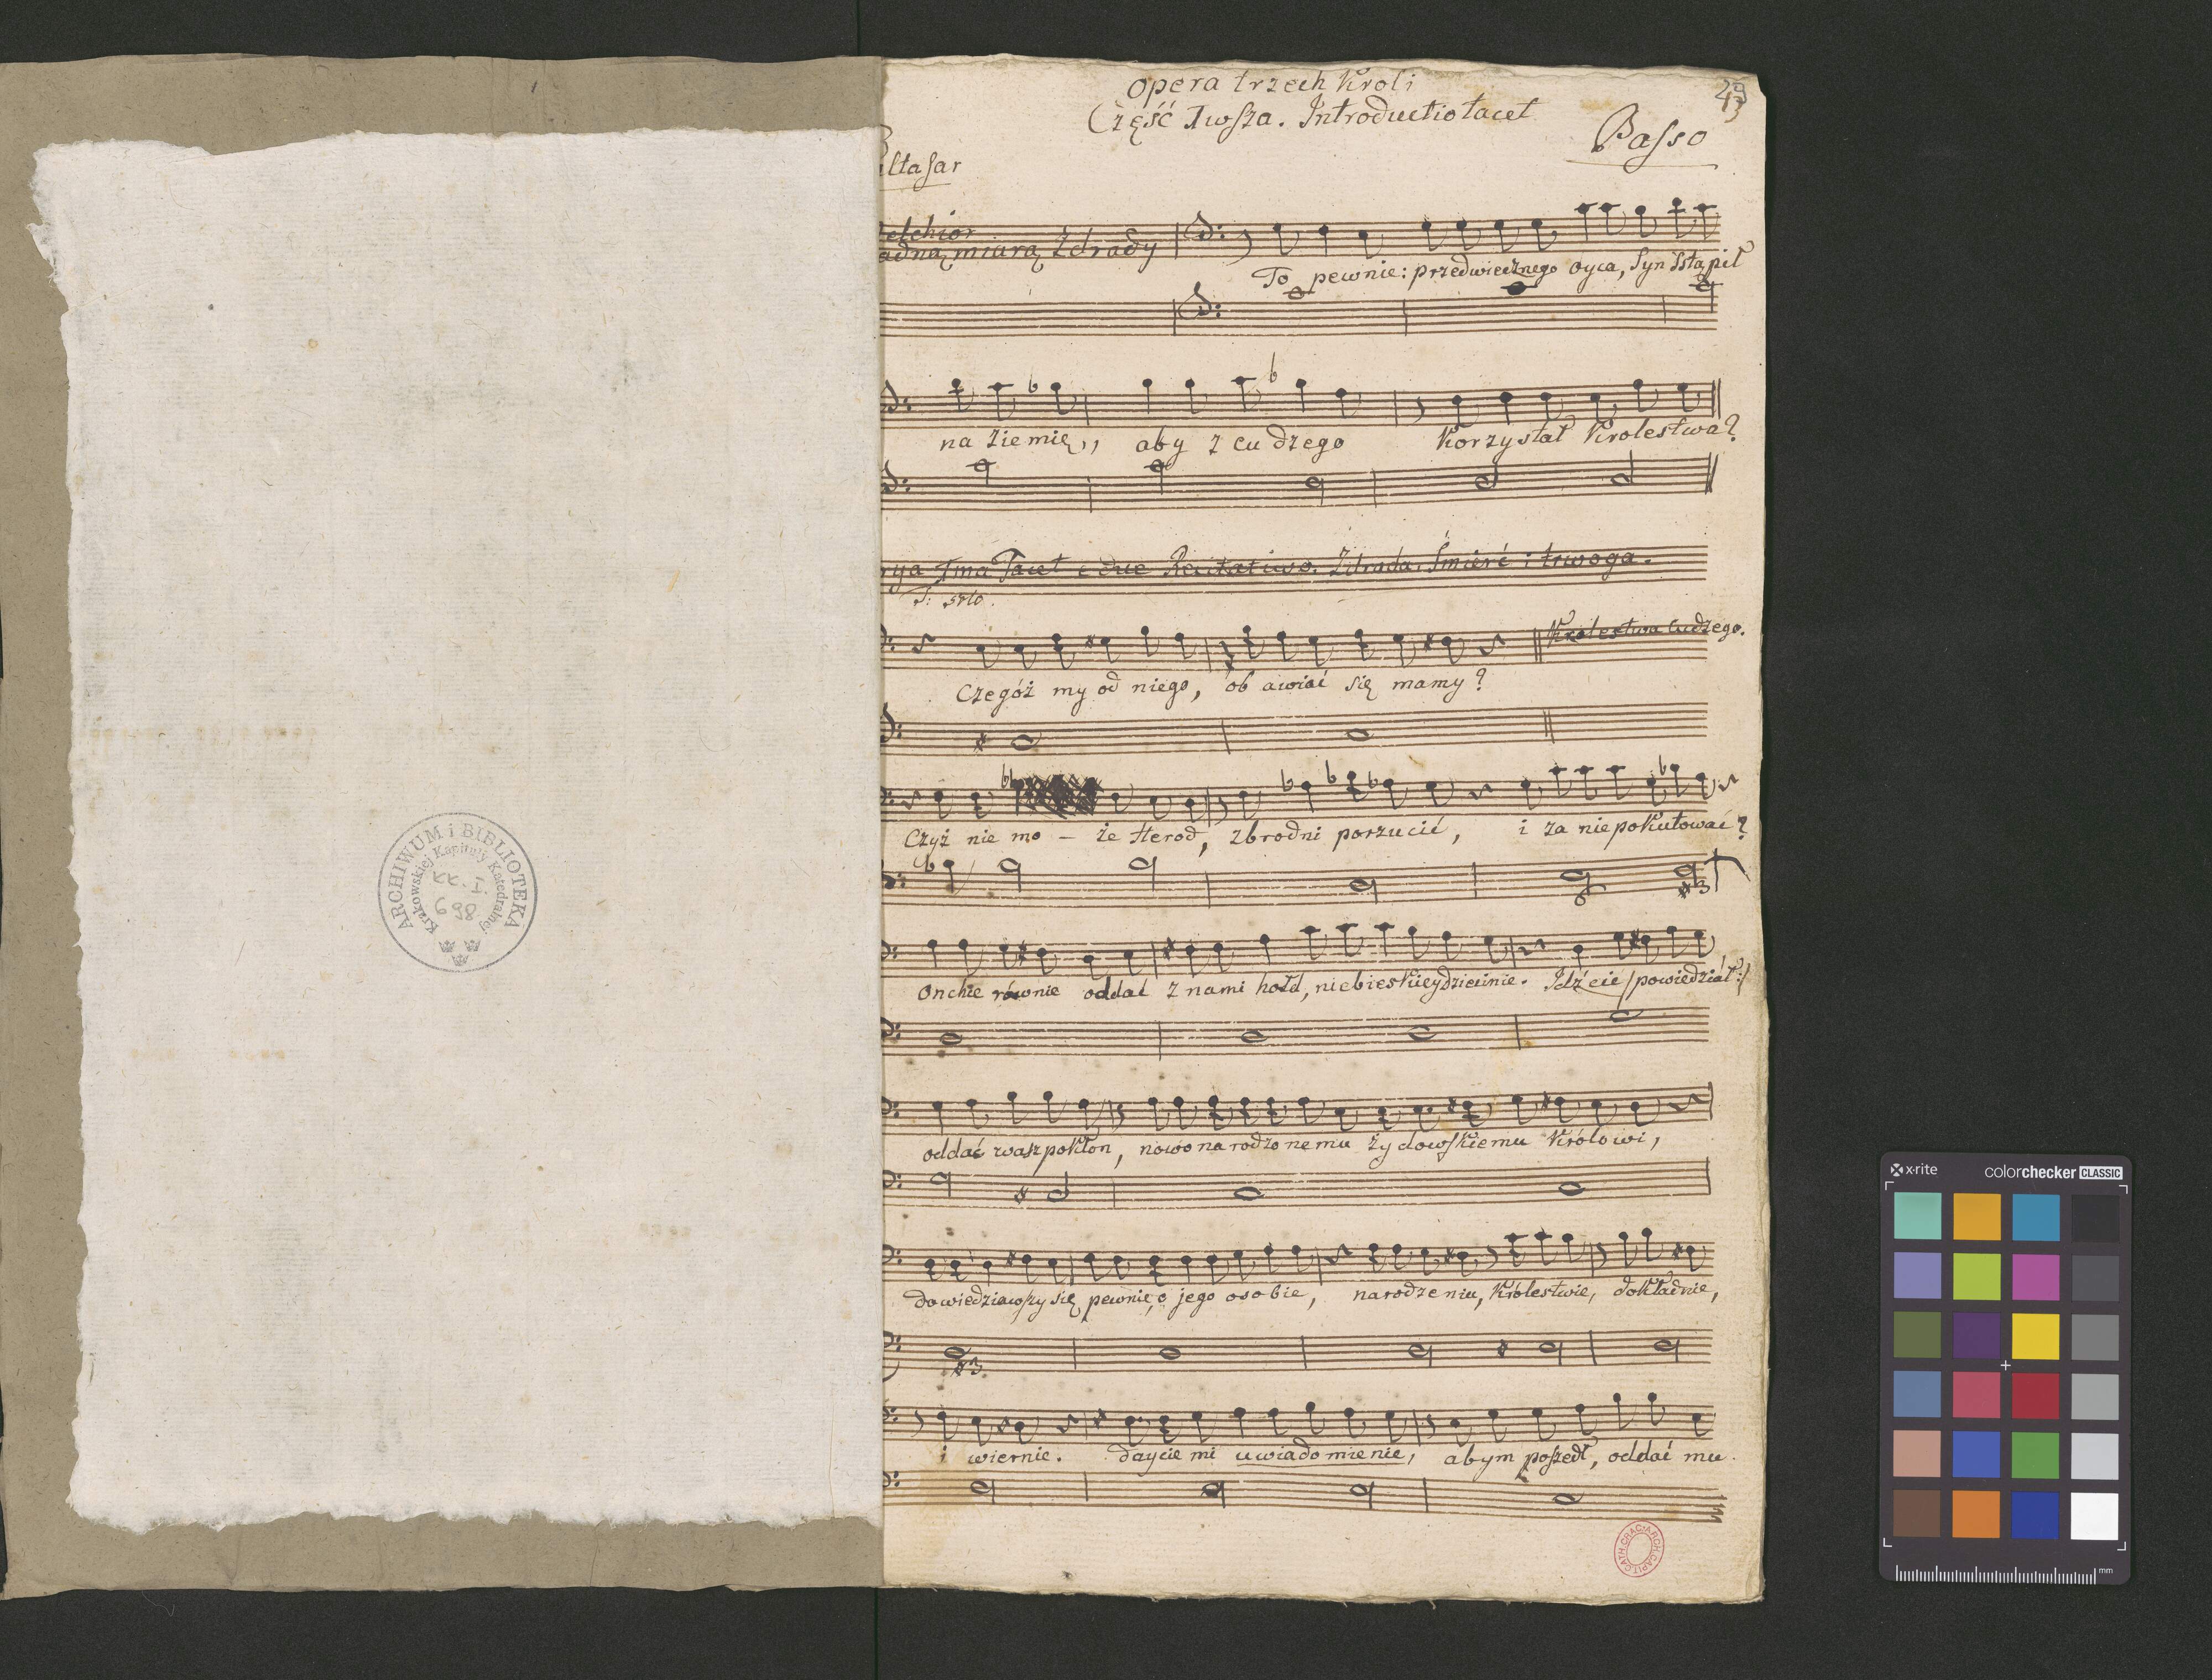 opera trzech Kroli
Część Iwsza. Introductio tacet
Basso
ltasar
elchior
adną miarą Zdrady
To pewnie: przedwiecznego oyca, Syn Sstąpił
na ziemię,, aby z cudzego Korzystał Krolestwa?
rya Ima Tacet e due Recitativo. Zdrada. Śmierć i trwoga.
Krolestwa Cudzego.
Czegóż my od niego, ob awiać się mamy?
Czyż nie mo – że Herod, zbrodni porzucić, i za nie pokutować?
6 #3
On chce równie oddać z nami hołd, niebieskiey dziecinie. Idźcie /powiedział:/
oddać wasz pokłon, nowo narodzonemu żydowskiemu Królowi,
dowiedziawszy się pewnie, o jego osobie, narodzeniu, Królestwie, dokładnie,
#3
i wiernie. daycie mi uwiadomienie, abym poszedł, oddać mu.
ARCHIWUM i BIBLIOTEKA
Krakowskiej Kapituły Katedralnej
KK. I.
698
ARCH. CAPIT. CATH. CRAC.
x-rite colorchecker CLASSIC
mm